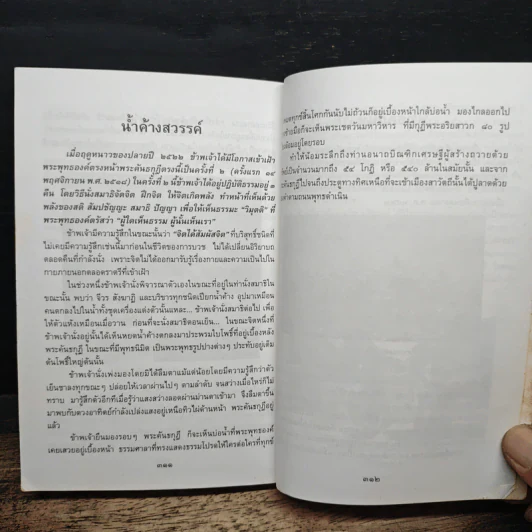 น้ำค้างสวรรค์
เมื่อฤดูหนาวของปลายปี ๒๕๒๒ ข้าพเจ้าได้มีโอกาสเข้าเฝ้า
พระพุทธองค์ตรงหน้าพระคันธกุฎีตรงนี้เป็นครั้งที่ ๒ (ครั้งแรก ๑๙
พฤศจิกายน พ.ศ. ๒๕๑๘) ในครั้งที่ ๒ นี้ข้าพเจ้าได้อยู่ปฏิบัติธรรมอยู่ ๑
คืน โดยวิธีนั่งสมาธิจัดจิต ฝึกจิต ให้จิตเกิดพลัง ทำหน้าที่เห็นด้วย
พลังของสติ สัมปชัญญะ สมาธิ ปัญญา เพื่อให้เห็นธรรมะ "วิมุตติ" ที่
พระพุทธองค์ตรัสว่า "ผู้ใดเห็นธรรม ผู้นั้นเห็นเรา"
ข้าพเจ้ามีความรู้สึกในขณะนั้นว่า "จิตได้สัมผัสจิต" ที่บริสุทธิ์ชนิดที่
ไม่เคยมีความรู้สึกเช่นนี้มาก่อนในชีวิตของการบวช ไม่ได้เปลี่ยนอิริยาบถ
ตลอดคืนที่กำลังนั่ง เพราะจิตไม่ได้ออกมารับรู้เรื่องกายและความเป็นไปใน
กายภายนอกตลอดราตรีที่เข้าเฝ้า
ในช่วงหนึ่งข้าพเจ้านั่งพิจารณาตัวเองในขณะที่อยู่ในท่านั่งสมาธิใน
ขณะนั้น พบว่า จีวร สังฆาฏิ และบริขารทุกชนิดเปียกน้ำค้าง อุปมาเหมือน
คนตกลงไปในน้ำทั้งชุดเครื่องแต่งตัวนั้นแหละ... ข้าพเจ้านั่งสมาธิต่อไป เพื่อ
ให้ตัวแห้งเหมือนเมื่อวาน ก่อนที่จะนั่งสมาธิตอนเย็น... ในขณะจิตหนึ่งที่
ข้าพเจ้านั่งอยู่นั้นได้เห็นหยดน้ำค้างตกลงมาประพรมใบโพธิ์ที่อยู่เบื้องหลัง
พระคันธกุฎี ในขณะที่มีพุทธนิมิต เป็นพระพุทธรูปปางต่างๆ ประทับอยู่เต็ม
ต้นโพธิ์ใหญ่ต้นนั้น
ข้าพเจ้านั่งเพ่งมองโดยมิได้ลืมตาแม้แต่น้อยโดยมีความรู้สึกว่าตัว
เย็นชาลงทุกขณะๆ ปล่อยให้เวลาผ่านไปๆ ตามลำดับ จนสว่างเมื่อไหร่ก็ไม่
ทราบ มารู้สึกตัวอีกทีเมื่อรู้ว่าแสงสว่างลอดผ่านม่านตาเข้ามา จึงลืมตาขึ้น
มาพบกับดวงอาทิตย์กำลังเปล่งแสงอยู่เหนือทิวไผ่ด้านหน้า พระคันธกุฎีอยู่
แล้ว
ข้าพเจ้ายืนมองรอบๆ พระคันธกุฎี ก็จะเห็นบ่อน้ำที่พระพุทธองค์
เคยเสวยอยู่เบื้องหน้า ธรรมศาลาที่ทรงแสดงธรรมโปรดให้ใครต่อใครที่ทุกข์
๓๑๑
หมดทุกข์สิ้นโศกกันนับไม่ถ้วนก็อยู่เบื้องหน้าใกล้บ่อน้ำ มองไกลออกไป
ก็จะเห็นพระเชตวันมหาวิหาร ที่มีกุฏิพระอริยสาวก ๘๐ รูป
ล้อมอยู่โดยรอบ
ทำให้น้อมระลึกถึงท่านอนาถบิณฑิกเศรษฐีผู้สร้างถวายด้วย
เป็นจำนวนมากถึง ๕๔ โกฏิ หรือ ๕๔๐ ล้านในสมัยนั้น และจาก
ไปจนถึงประตูทางทิศเหนือที่จะเข้าเมืองสาวัตถีนั้นได้ปูลาดด้วย
ตามถนนพุทธดำเนิน
๓๑๒